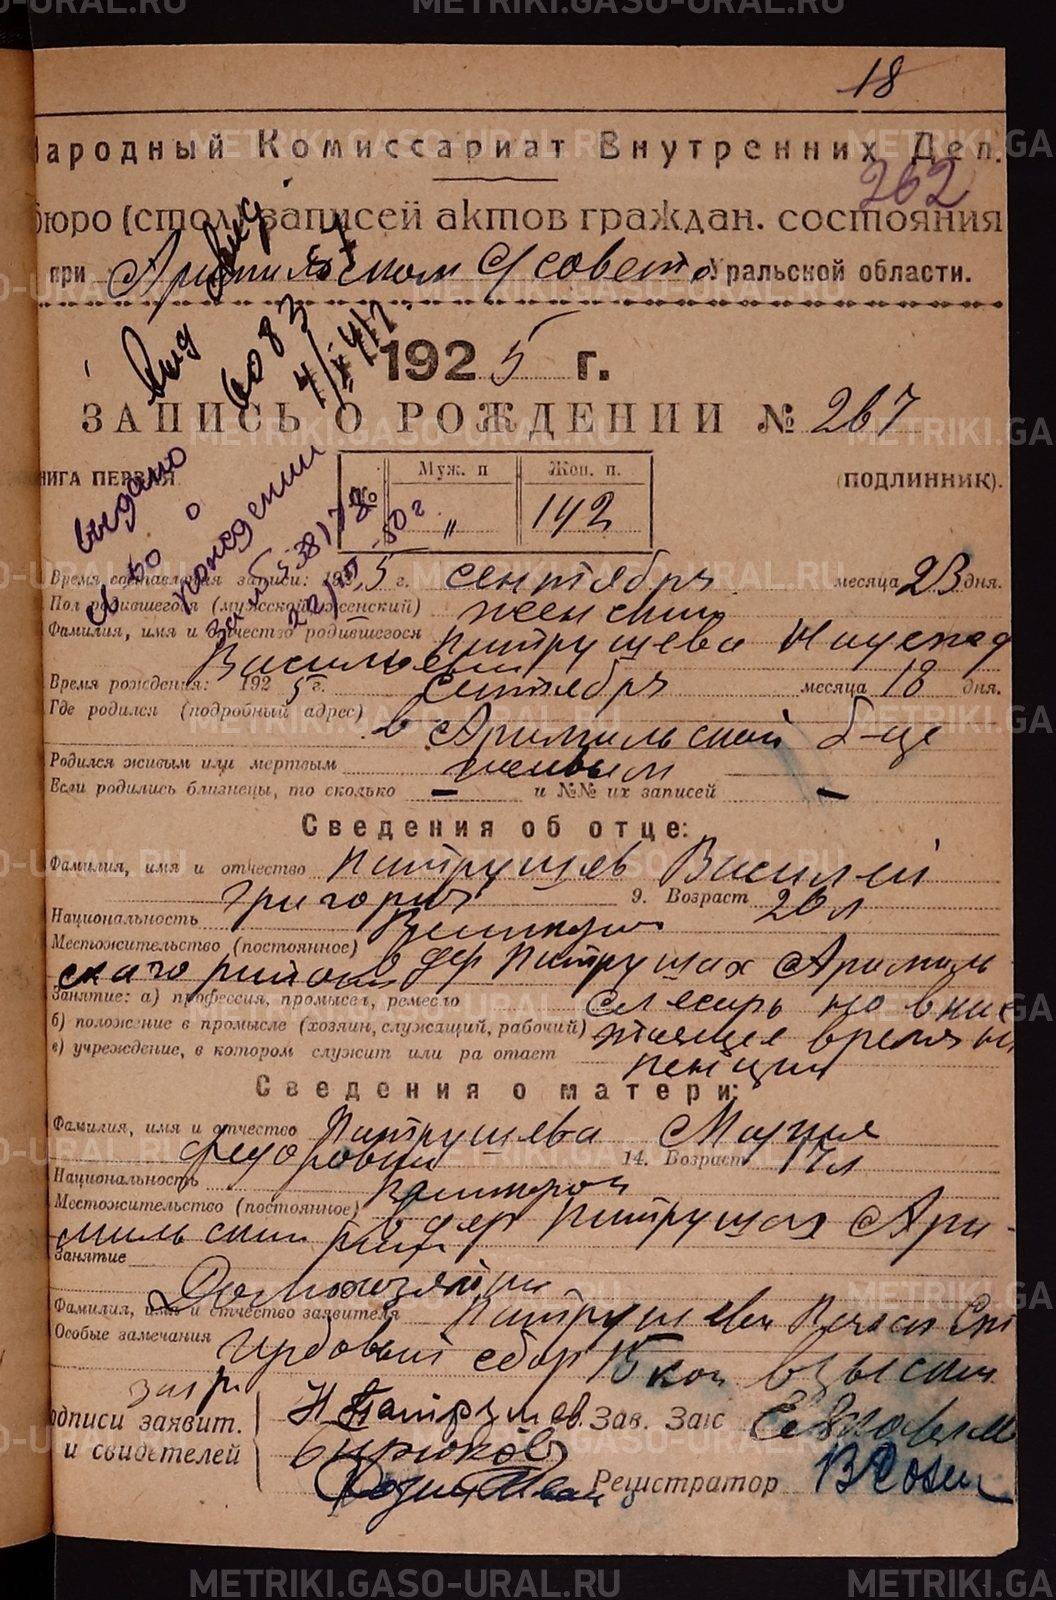 18
Народный Комиссариат Внутренних Дел.
262
бюро (стол) записей актов граждан. состояния
при Арамильском с/совете Уральской области.
6083
1925 г.
ЗАПИСЬ О РОЖДЕНИИ № 267
КНИГА ПЕРВАЯ. Муж. п Жен. п. (ПОДЛИННИК).
№ " 142
выдано
св-во о
рождении
Время составления записи: 1925 г. сентября месяца 23 дня.
Пол родившегося (мужской, женский) женский
Фамилия, имя и отчество родившегося Патрушева
Васильевна
Время рождения: 1925 г. сентября месяца 18 дня.
Где родился (подробный адрес) в Арамильской б-це
Родился живым или мертвым живым
Если родились близнецы, то сколько — и №№ их записей —
Сведения об отце:
Фамилия, имя и отчество Патрушев Василий
Григорьев 9. Возраст 26 л
Национальность
Местожительство (постоянное) в дер Патрушах Арамиль
скаго района
Занятие: а) профессия, промысел, ремесло слесарь но в нас
б) положение в промысле (хозяин, служащий, рабочий) тоящее время на
в) учреждение, в котором служит или работает пенции
Сведения о матери:
Фамилия, имя и отчество Патрушева Мария
Федоровна 14. Возраст
Национальность
Местожительство (постоянное) в дер Патрушах Ара-
мильский
Занятие
Домохозяйка
Фамилия, имя и отчество заявителя
Особые замечания Гербовый сбор 15 коп взыскан
Подписи заявит. Н Патрушев Зав. Загс
и свидетелей Бирюков
Регистратор
METRIKI.GASO-URAL.RU